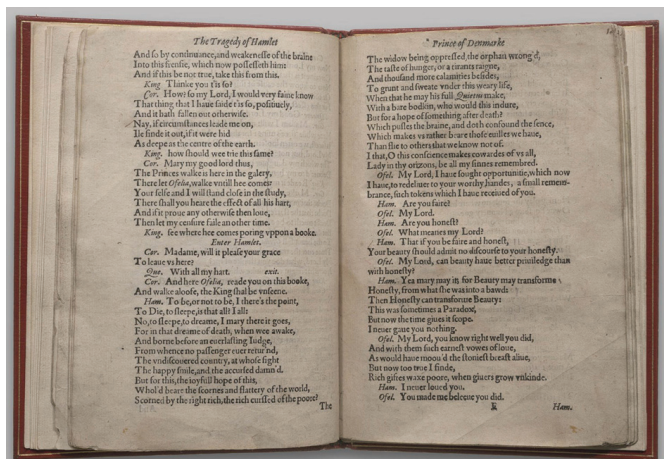 The Tragedy of Hamlet
And so by continuance, and weakenesse of the braine
Into this frensie, which now possesseth him:
And if this be not true, take this from this.
King Thinke you t'is so?
Cor. How? so my Lord, I would very faine know
That thing that I haue saide t'is so, positiuely,
And it hath fallen out otherwise.
Nay, if circumstances leade me on,
Ile finde it out, if it were hid
As deepe as the centre of the earth.
King. how should wee trie this same?
Cor. Mary my good lord thus,
The Princes walke is here in the galery,
There let Ofelia, walke vntill hee comes:
Your selfe and I will stand close in the study,
There shall you heare the effect of all his hart,
And if it proue any otherwise then loue,
Then let my censure faile an other time.
King. see where hee comes poring vppon a booke.
Enter Hamlet.
Cor. Madame, will it please your grace
To leaue vs here?
Que. With all my hart. exit.
Cor. And here Ofelia, reade you on this booke,
And walke aloofe, the King shal be vnseene.
Ham. To be, or not to be, I there's the point,
To Die, to sleepe, is that all? I all:
No, to sleepe, to dreame, I mary there it goes,
For in that dreame of death, when wee awake,
And borne before an euerlasting Iudge,
From whence no passenger euer retur'nd,
The vndiscouered country, at whose sight
The happy smile, and the accursed damn'd.
But for this, the ioyfull hope of this,
Whol'd beare the scornes and flattery of the world,
Scorned by the right rich, the rich curssed of the poore?
The
Prince of Denmarke
The widow being oppressed, the orphan wrong'd,
The taste of hunger, or a tirants raigne,
And thousand more calamities besides,
To grunt and sweate vnder this weary life,
When that he may his full Quietus make,
With a bare bodkin, who would this indure,
But for a hope of something after death?
Which pusles the braine, and doth confound the sence,
Which makes vs rather beare those euilles we haue,
Than flie to others that we know not of.
I that, O this conscience makes cowardes of vs all,
Lady in thy orizons, be all my sinnes remembred.
Ofel. My Lord, I haue sought opportunitie, which now
I haue, to redeliuer to your worthy handes, a small remem-
brance, such tokens which I haue receiued of you.
Ham. Are you faire?
Ofel. My Lord.
Ham. Are you honest?
Ofel. What meanes my Lord?
Ham. That if you be faire and honest,
Your beauty should admit no discourse to your honesty.
Ofel. My Lord, can beauty haue better priuiledge than
with honesty?
Ham. Yea mary may it; for Beauty may transforme
Honesty, from what she was into a bawd:
Then Honesty can transforme Beauty:
This was sometimes a Paradox,
But now the time giues it scope.
I neuer gaue you nothing.
Ofel. My Lord, you know right well you did,
And with them such earnest vowes of loue,
As would haue moou'd the stoniest breast aliue,
But now too true I finde,
Rich giftes waxe poore, when giuers grow vnkinde.
Ham. I neuer loued you.
Ofel. You made me beleeue you did.
E Ham.